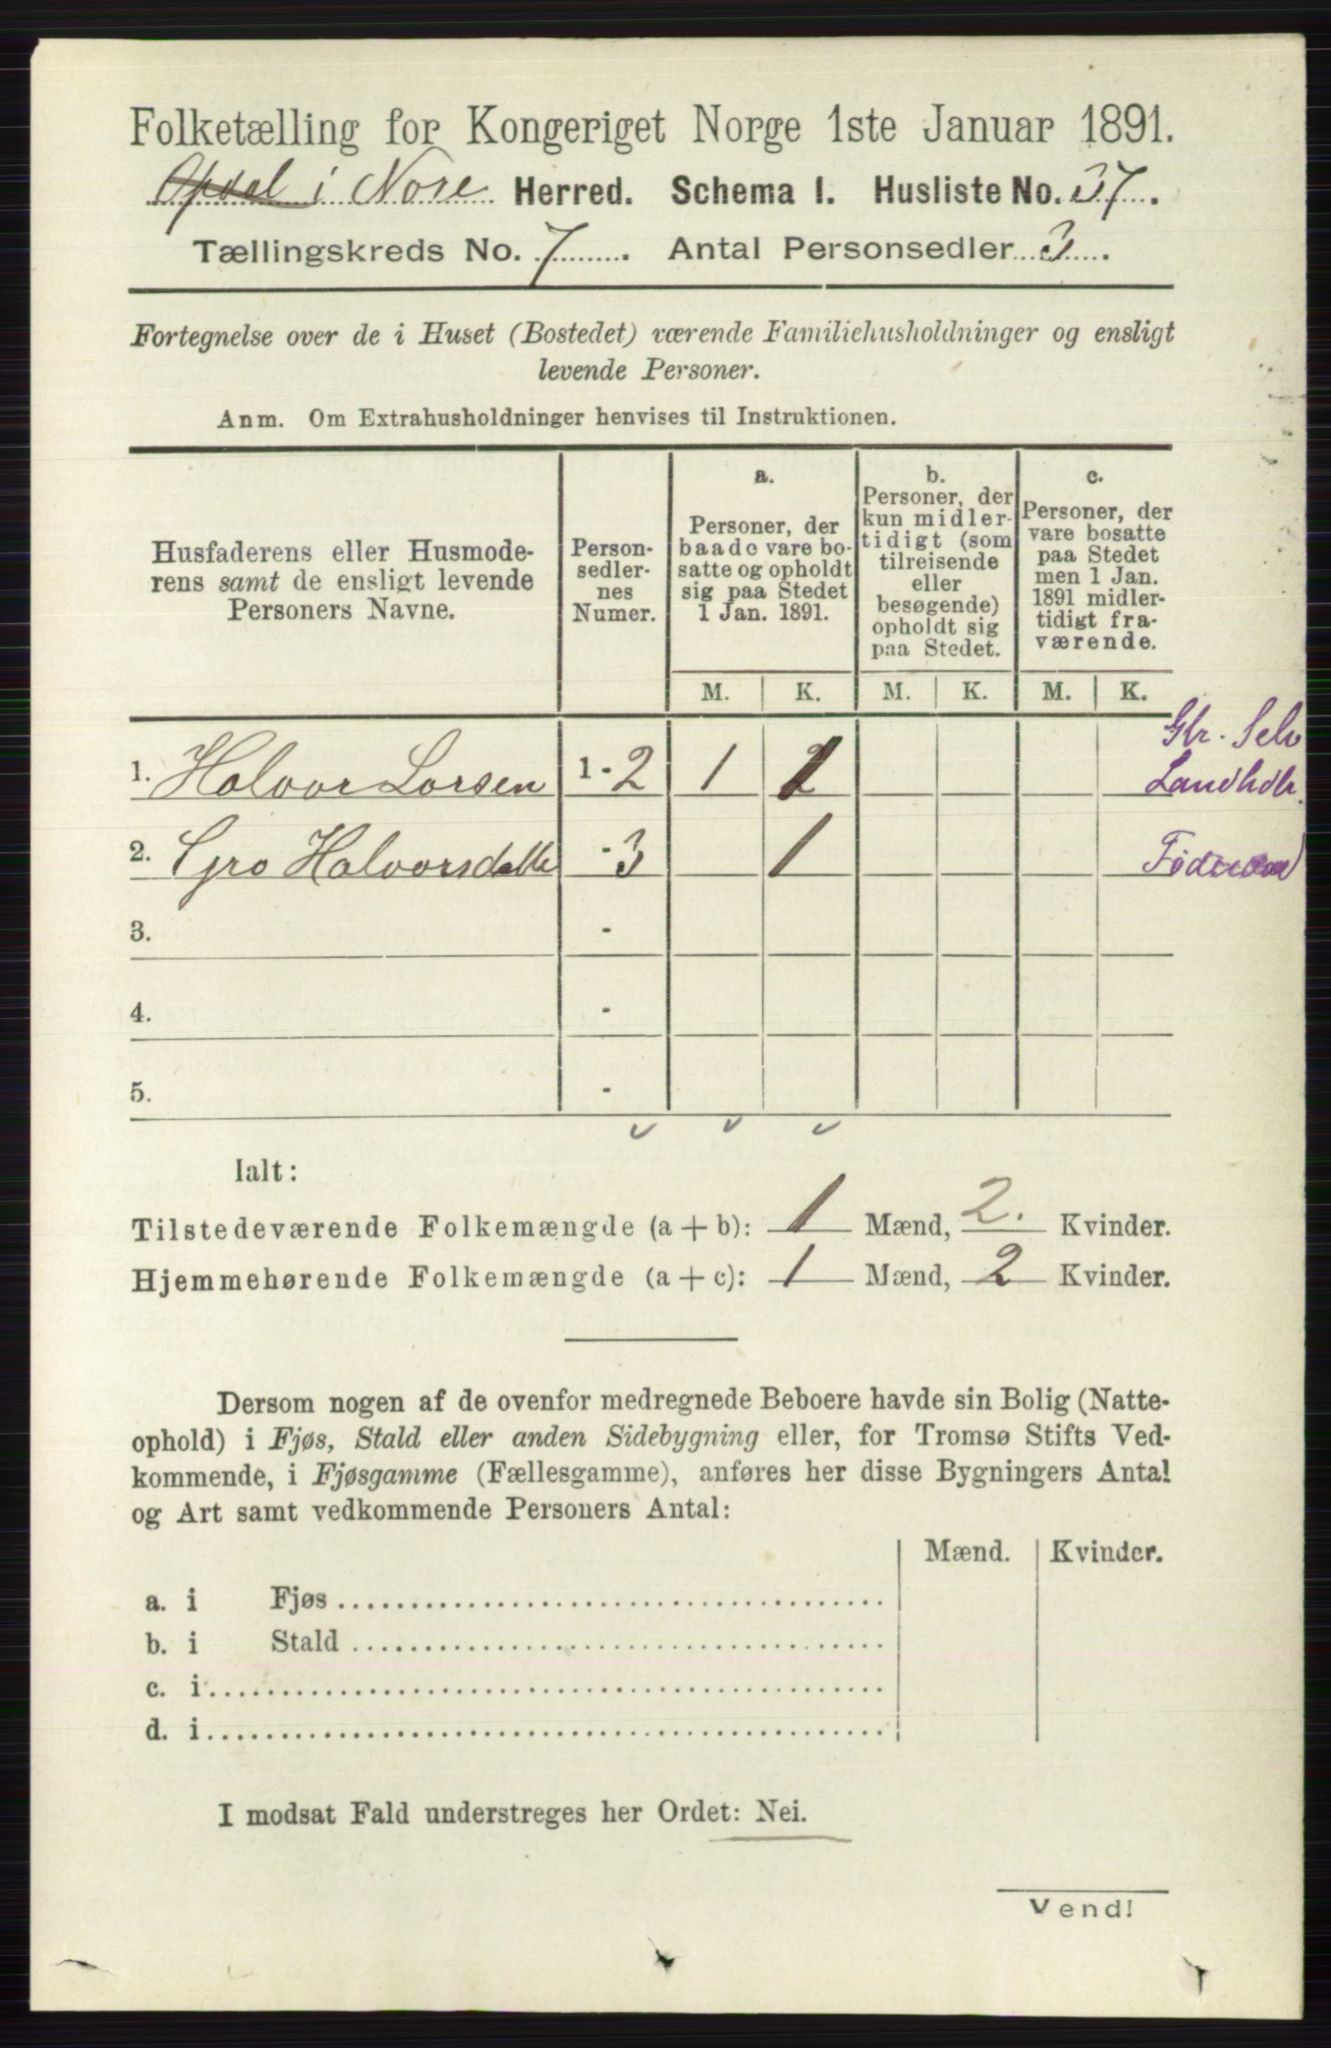 Folketælling for Kongeriget Norge 1ste Januar 1891.
Opdal i Nore Herred. Schema I. Husliste No. 37.
Tællingskreds No. 7. Antal Personsedler 3.
Fortegnelse over de i Huset (Bostedet) værende Familiehusholdninger og ensligt
levende Personer.
Anm. Om Extrahusholdninger henvises til Instruktionen.
Husfaderens eller Husmode-
rens samt de ensligt levende
Personers Navne.
Person-
sedler-
nes
Numer.
a.
Personer, der
baade vare bo-
satte og opholdt
sig paa Stedet
1 Jan. 1891.
b.
Personer, der
kun midler-
tidigt (som
tilreisende
eller
besøgende)
opholdt sig
paa Stedet.
c.
Personer, der
vare bosatte
paa Stedet
men 1 Jan.
1891 midler-
tidigt fra-
værende.
M. K. M. K. M. K.
Gbr. Selv
1. Halvor Larsen 1-2 1 1 Landhdl.
2. Gro Halvorsdatter -3 1 Føderaad
3. -
4. -
5. -
Ialt:
Tilstedeværende Folkemængde (a + b): 1 Mænd, 2. Kvinder.
Hjemmehørende Folkemængde (a + c): 1 Mænd, 2 Kvinder.
Dersom nogen af de ovenfor medregnede Beboere havde sin Bolig (Natte-
ophold) i Fjøs, Stald eller anden Sidebygning eller, for Tromsø Stifts Ved-
kommende, i Fjøsgamme (Fællesgamme), anføres her disse Bygningers Antal
og Art samt vedkommende Personers Antal:
Mænd. Kvinder.
a. i Fjøs
b. i Stald
c. i
d. i
I modsat Fald understreges her Ordet: Nei.
Vend!